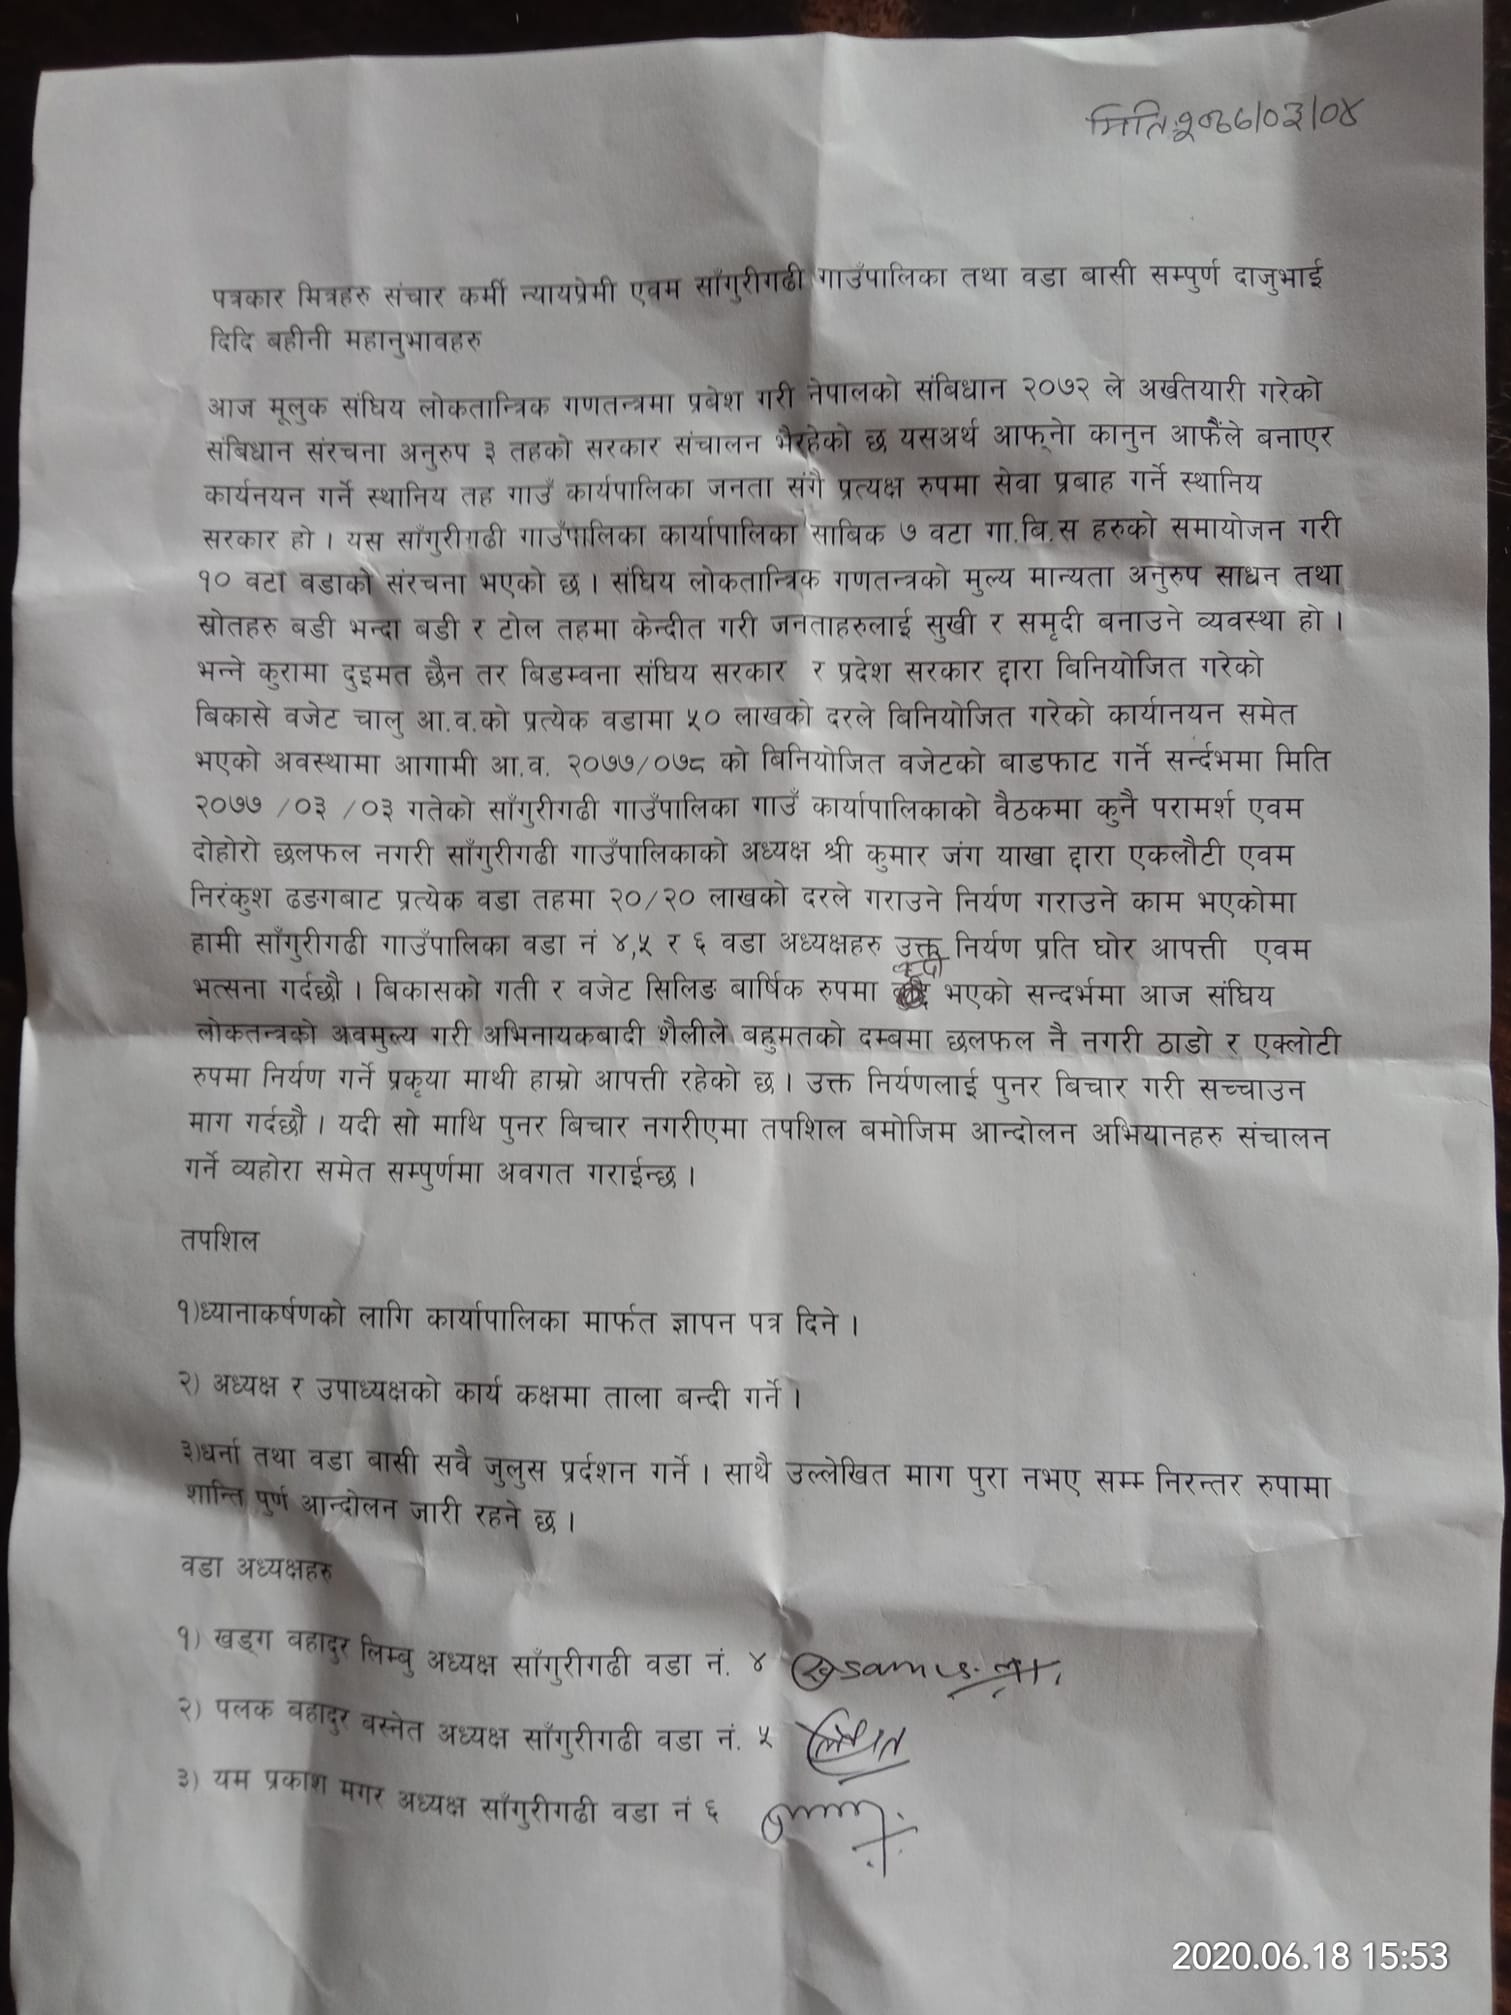 मिति:२०७७/०३/०४
पत्रकार मित्रहरु संचार कर्मी न्यायप्रेमी एवम साँगुरीगढी गाउँपालिका तथा वडा बासी सम्पुर्ण दाजुभाई
दिदि बहीनी महानुभावहरु
आज मूलुक संघिय लोकतान्त्रिक गणतन्त्रमा प्रबेश गरी नेपालको संबिधान २०७२ ले अर्खतियारी गरेको
संबिधान संरचना अनुरुप ३ तहको सरकार संचालन भैरहेको छ यसअर्थ आफ्नेा कानुन आफैंले बनाएर
कार्यनयन गर्ने स्थानिय तह गाउँ कार्यपालिका जनता संगै प्रत्यक्ष रुपमा सेवा प्रबाह गर्ने स्थानिय
सरकार हो । यस साँगुरीगढी गाउँपालिका कार्यापालिका साबिक ७ वटा गा.बि.स हरुको समायोजन गरी
१० वटा वडाको संरचना भएको छ । संघिय लोकतान्त्रिक गणतन्त्रको मुल्य मान्यता अनुरुप साधन तथा
स्रोतहरु बडी भन्दा बडी र टोल तहमा केन्दीत गरी जनताहरुलाई सुखी र समृदी बनाउने व्यवस्था हो ।
भन्ने कुरामा दुइमत छैन तर बिडम्वना संघिय सरकार र प्रदेश सरकार द्दारा बिनियोजित गरेको
बिकासे वजेट चालु आ.व.को प्रत्येक वडामा ५० लाखको दरले बिनियोजित गरेको कार्यानयन समेत
भएको अवस्थामा आगामी आ.व. २०७७/०७८ को बिनियोजित वजेटको बाडफाट गर्ने सर्न्दभमा मिति
२०७७ /०३ /०३ गतेको साँगुरीगढी गाउँपालिका गाउँ कार्यापालिकाको वैठकमा कुनै परामर्श एवम
दोहोरो छलफल नगरी साँगुरीगढी गाउँपालिकाको अध्यक्ष श्री कुमार जंग याखा द्दारा एकलौटी एवम
निरंकुश ढङगबाट प्रत्येक वडा तहमा २०/२० लाखको दरले गराउने निर्यण गराउने काम भएकोमा
हामी साँगुरीगढी गाउँपालिका वडा नं ४,५ र ६ वडा अध्यक्षहरु उक्त निर्यण प्रति घोर आपत्ती एवम
भत्सना गर्दछौ । बिकासको गती र वजेट सिलिङ बार्षिक रुपमा भएको सन्दर्भमा आज संघिय
लोकतन्त्रको अवमुल्य गरी अभिनायकबादी शैलीले बहुमतको दम्बमा छलफल नै नगरी ठाडो र एक्लोटी
रुपमा निर्यण गर्ने प्रकृया माथी हाम्रो आपत्ती रहेको छ । उक्त निर्यणलाई पुनर बिचार गरी सच्चाउन
माग गर्दछौ । यदी सो माथि पुनर बिचार नगरीएमा तपशिल बमोजिम आन्दोलन अभियानहरु संचालन
गर्ने व्यहोरा समेत सम्पुर्णमा अवगत गराईन्छ ।
तपशिल
१)ध्यानाकर्षणको लागि कार्यापालिका मार्फत ज्ञापन पत्र दिने ।
२) अध्यक्ष र उपाध्यक्षको कार्य कक्षमा ताला बन्दी गर्ने ।
३)धर्ना तथा वडा बासी सवै जुलुस प्रर्दशन गर्ने । साथै उल्लेखित माग पुरा नभए सम्म निरन्तर रुपामा
शान्ति पुर्ण आन्दोलन जारी रहने छ ।
वडा अध्यक्षहरु
१) खड्ग बहादुर लिम्बु अध्यक्ष साँगुरीगढी वडा नं. ४
२) पलक बहादुर वस्नेत अध्यक्ष साँगुरीगढी वडा नं. ५
३) यम प्रकाश मगर अध्यक्ष साँगुरीगढी वडा नं ६
2020.06.18 15:53